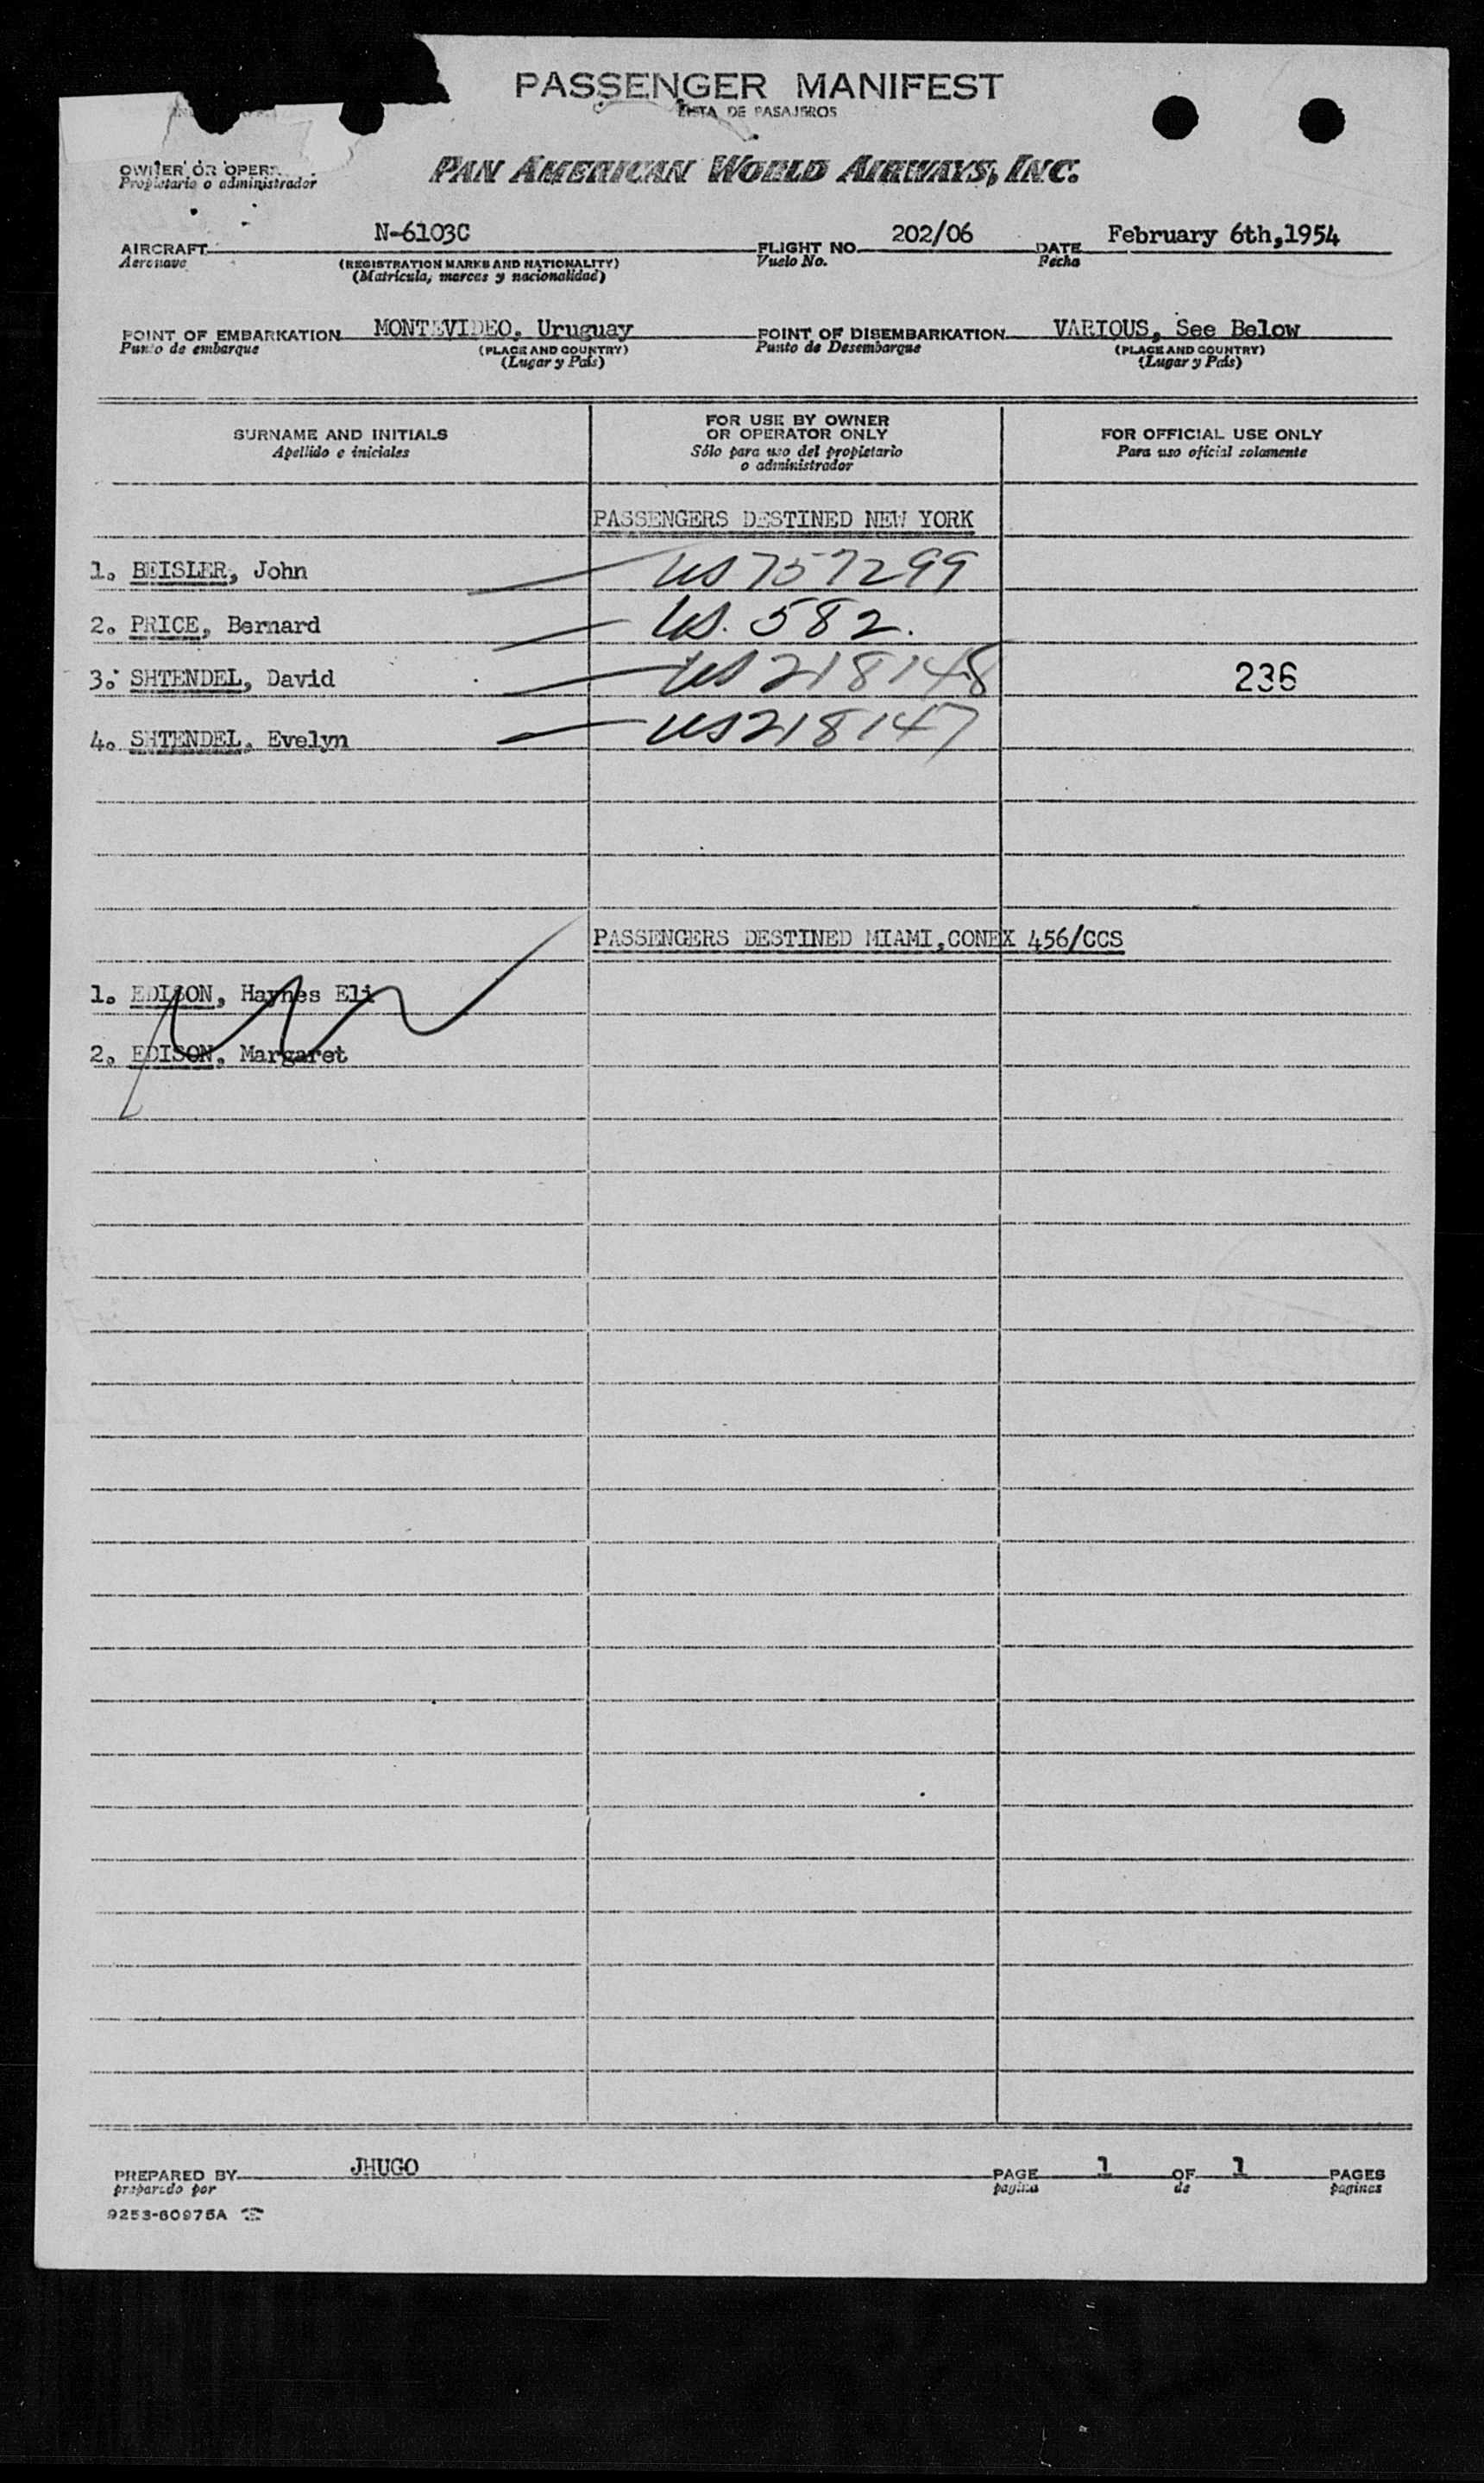 PASSENGER MANIFEST
LISTA DE PASAJEROS
OWNER OR OPER
Propietario o administrador
PAN AMERICAN WORLD AIRWAYS, INC.
AIRCRAFT N-6103C FLIGHT NO. 202/06 DATE February 6th,1954
Aeronave (REGISTRATION MARKS AND NATIONALITY) Vuelo No. Fecha
(Matrícula, marcas y nacionalidad)
POINT OF EMBARKATION MONTEVIDEO, Uruguay POINT OF DISEMBARKATION VARIOUS, See Below
Punto de embarque (PLACE AND COUNTRY) Punto de Desembarque (PLACE AND COUNTRY)
(Lugar y País) (Lugar y País)
SURNAME AND INITIALS FOR USE BY OWNER OR OPERATOR ONLY FOR OFFICIAL USE ONLY
Apellido e iniciales Sólo para uso del propietario o administrador Para uso oficial solamente
PASSENGERS DESTINED NEW YORK
1. BEISLER, John US 757299
2. PRICE, Bernard US. 582.
3. SHTENDEL, David US 218148 236
4. SHTENDEL, Evelyn US218147
PASSENGERS DESTINED MIAMI,CONEX 456/CCS
1. EDISON, Haynes Eli
2. EDISON, Margaret
PREPARED BY JHUGO PAGE 1 OF 1 PAGES
preparado por pagina de paginas
9253-60975A